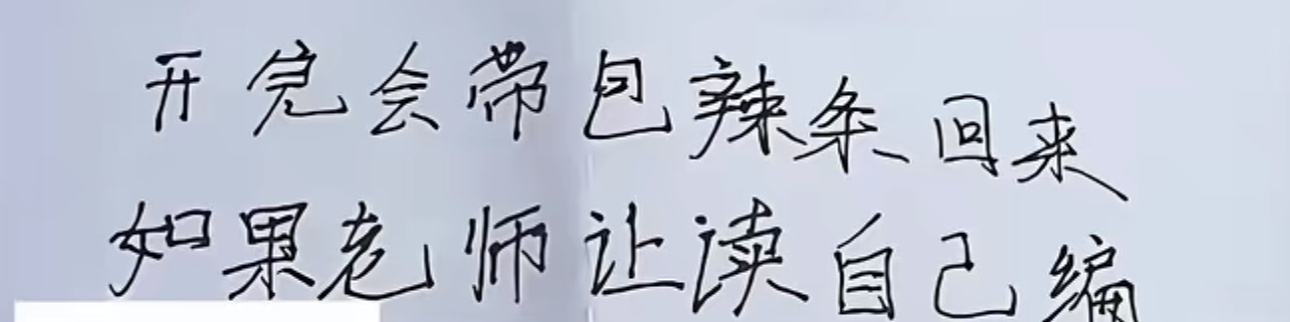 开完会带包辣条回来
如果老师让读自己编